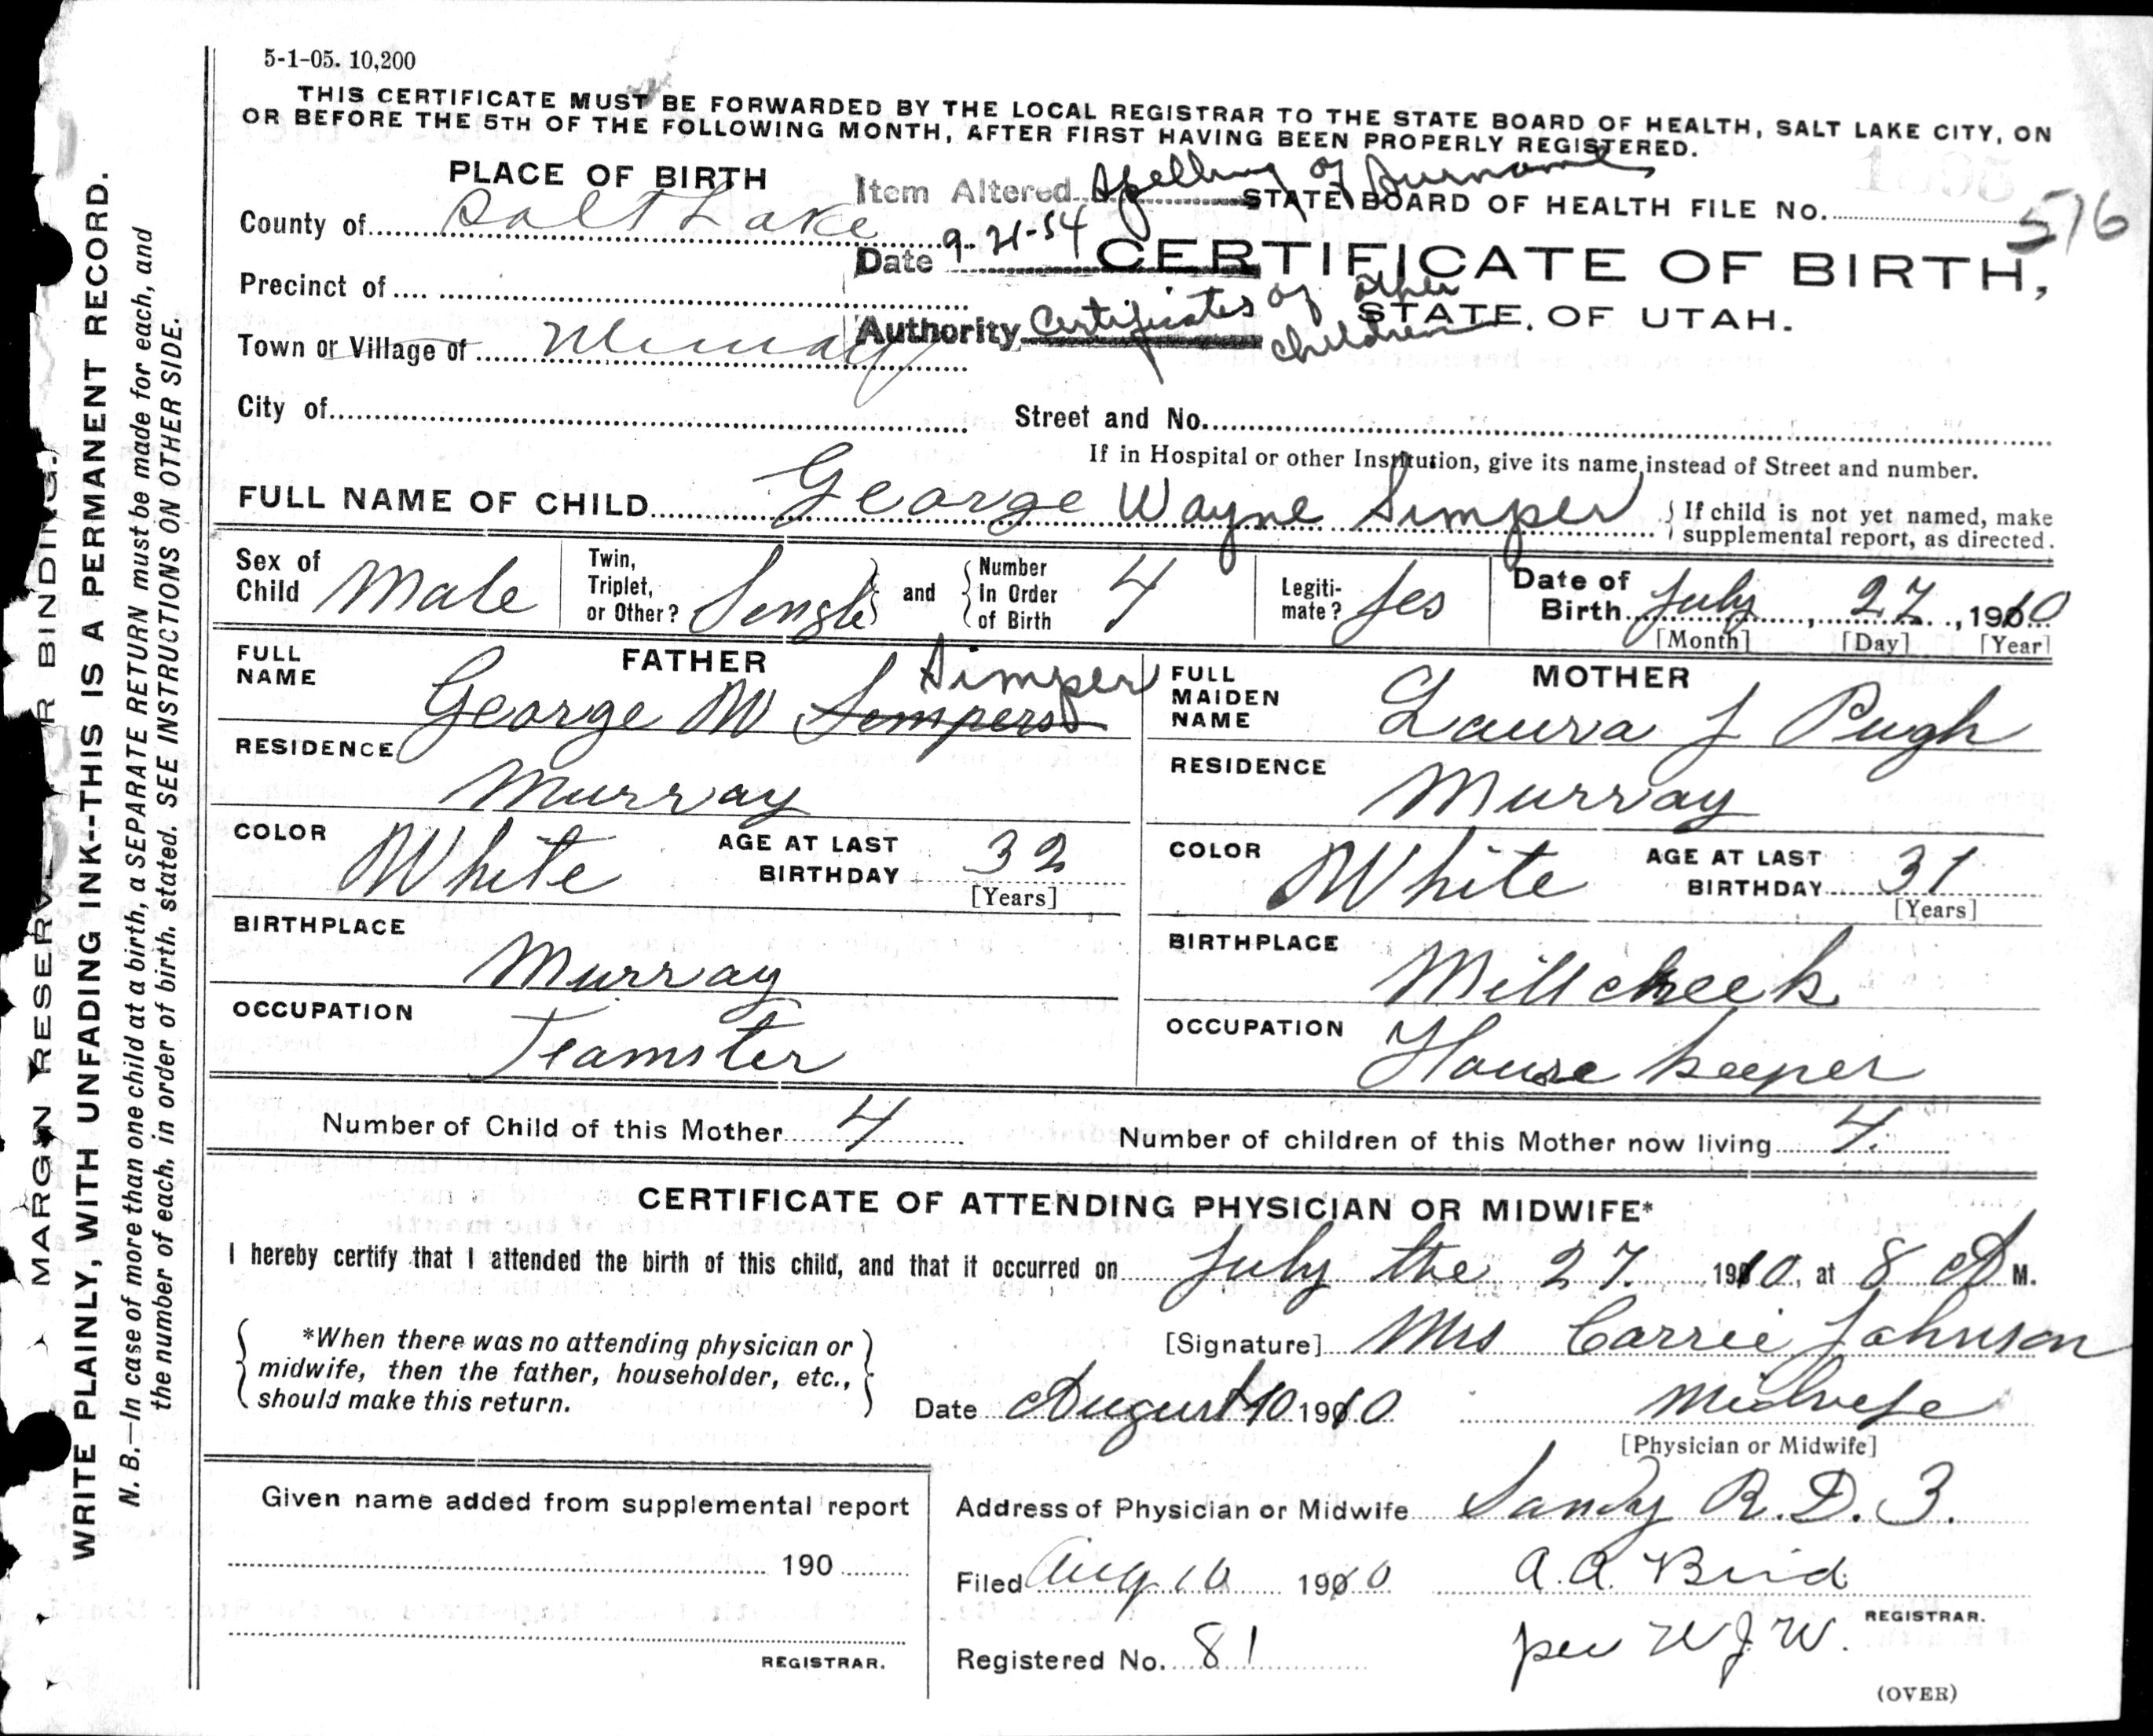 5-1-05. 10,200
THIS CERTIFICATE MUST BE FORWARDED BY THE LOCAL REGISTRAR TO THE STATE BOARD OF HEALTH, SALT LAKE CITY, ON
OR BEFORE THE 5TH OF THE FOLLOWING MONTH, AFTER FIRST HAVING BEEN PROPERLY REGISTERED.
PLACE OF BIRTH
Item Altered Spelling of Surname
STATE BOARD OF HEALTH FILE No. 576
County of Salt Lake
Date 9-21-54
CERTIFICATE OF BIRTH,
STATE OF UTAH.
Precinct of
Authority Certificates of other children
Town or Village of Murray
City of
Street and No.
If in Hospital or other Institution, give its name instead of Street and number.
FULL NAME OF CHILD George Wayne Simper
{ If child is not yet named, make
supplemental report, as directed.
Sex of Child Male
Twin, Triplet, or Other? Single } and { Number In Order of Birth 4
Legitimate? Yes
Date of Birth July 27, 1910
[Month] [Day] [Year]
FATHER
FULL NAME George W Sempers Simper
RESIDENCE Murray
COLOR White
AGE AT LAST BIRTHDAY 32
[Years]
BIRTHPLACE Murray
OCCUPATION Teamster
MOTHER
FULL MAIDEN NAME Laura J Pugh
RESIDENCE Murray
COLOR White
AGE AT LAST BIRTHDAY 31
[Years]
BIRTHPLACE Millcreek
OCCUPATION House keeper
Number of Child of this Mother 4
Number of children of this Mother now living 4.
CERTIFICATE OF ATTENDING PHYSICIAN OR MIDWIFE*
I hereby certify that I attended the birth of this child, and that it occurred on July the 27. 1910, at 8 A M.
{ *When there was no attending physician or
midwife, then the father, householder, etc.,
should make this return. }
[Signature] Mrs Carrie Johnson
Date August 10 1910
Midwife
[Physician or Midwife]
Given name added from supplemental report
190
REGISTRAR.
Address of Physician or Midwife Sandy R.D. 3.
Filed Aug 10 1910
A. A. Bird
REGISTRAR.
Registered No. 81
per W J W.
(OVER)
MARGIN RESERV R BINDING.
WRITE PLAINLY, WITH UNFADING INK--THIS IS A PERMANENT RECORD.
N. B.—In case of more than one child at a birth, a SEPARATE RETURN must be made for each, and
the number of each, in order of birth, stated. SEE INSTRUCTIONS ON OTHER SIDE.